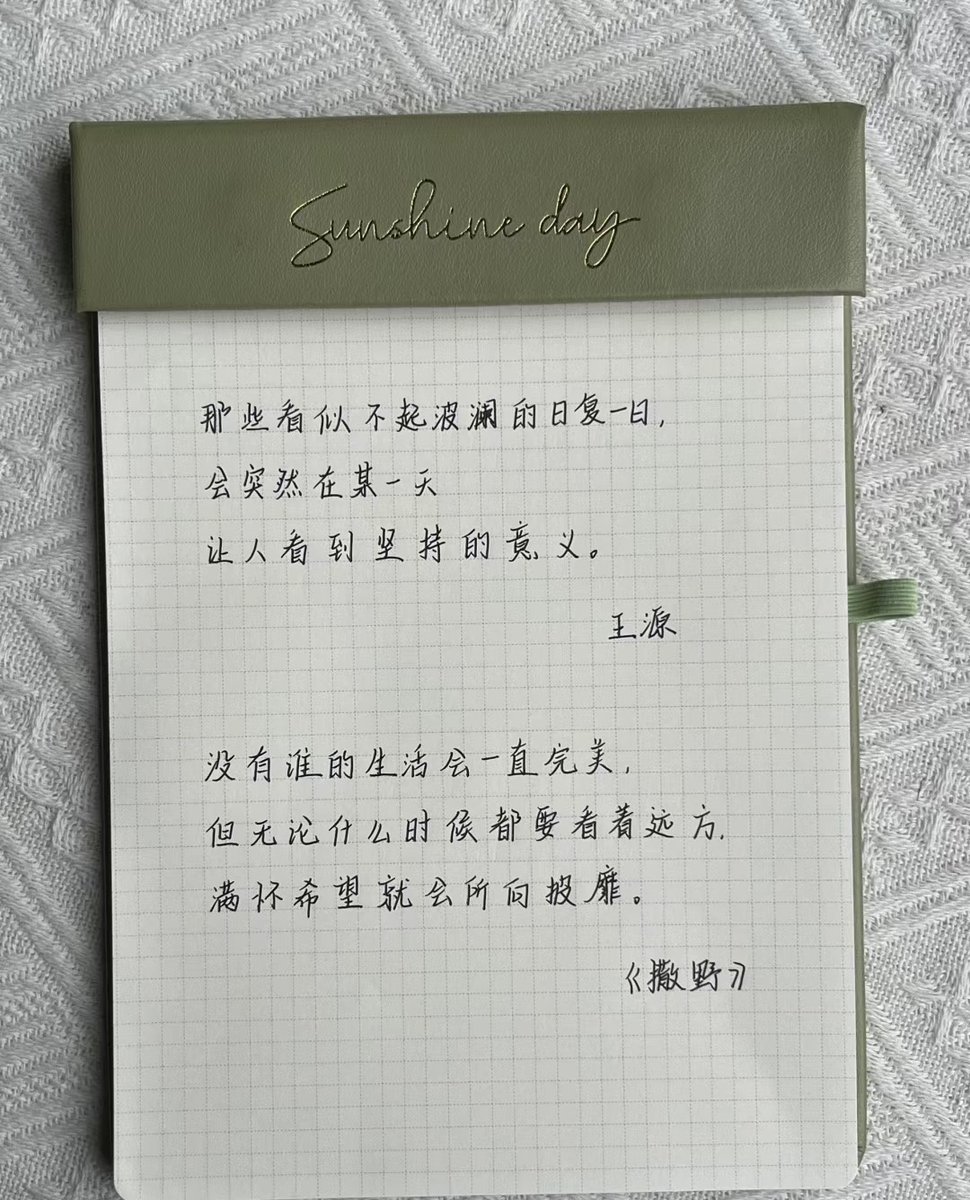 Sunshine day
那些看似不起波澜的日复一日,
会突然在某一天
让人看到坚持的意义。
王源
没有谁的生活会一直完美,
但无论什么时候都要看着远方,
满怀希望就会所向披靡。
《撒野》